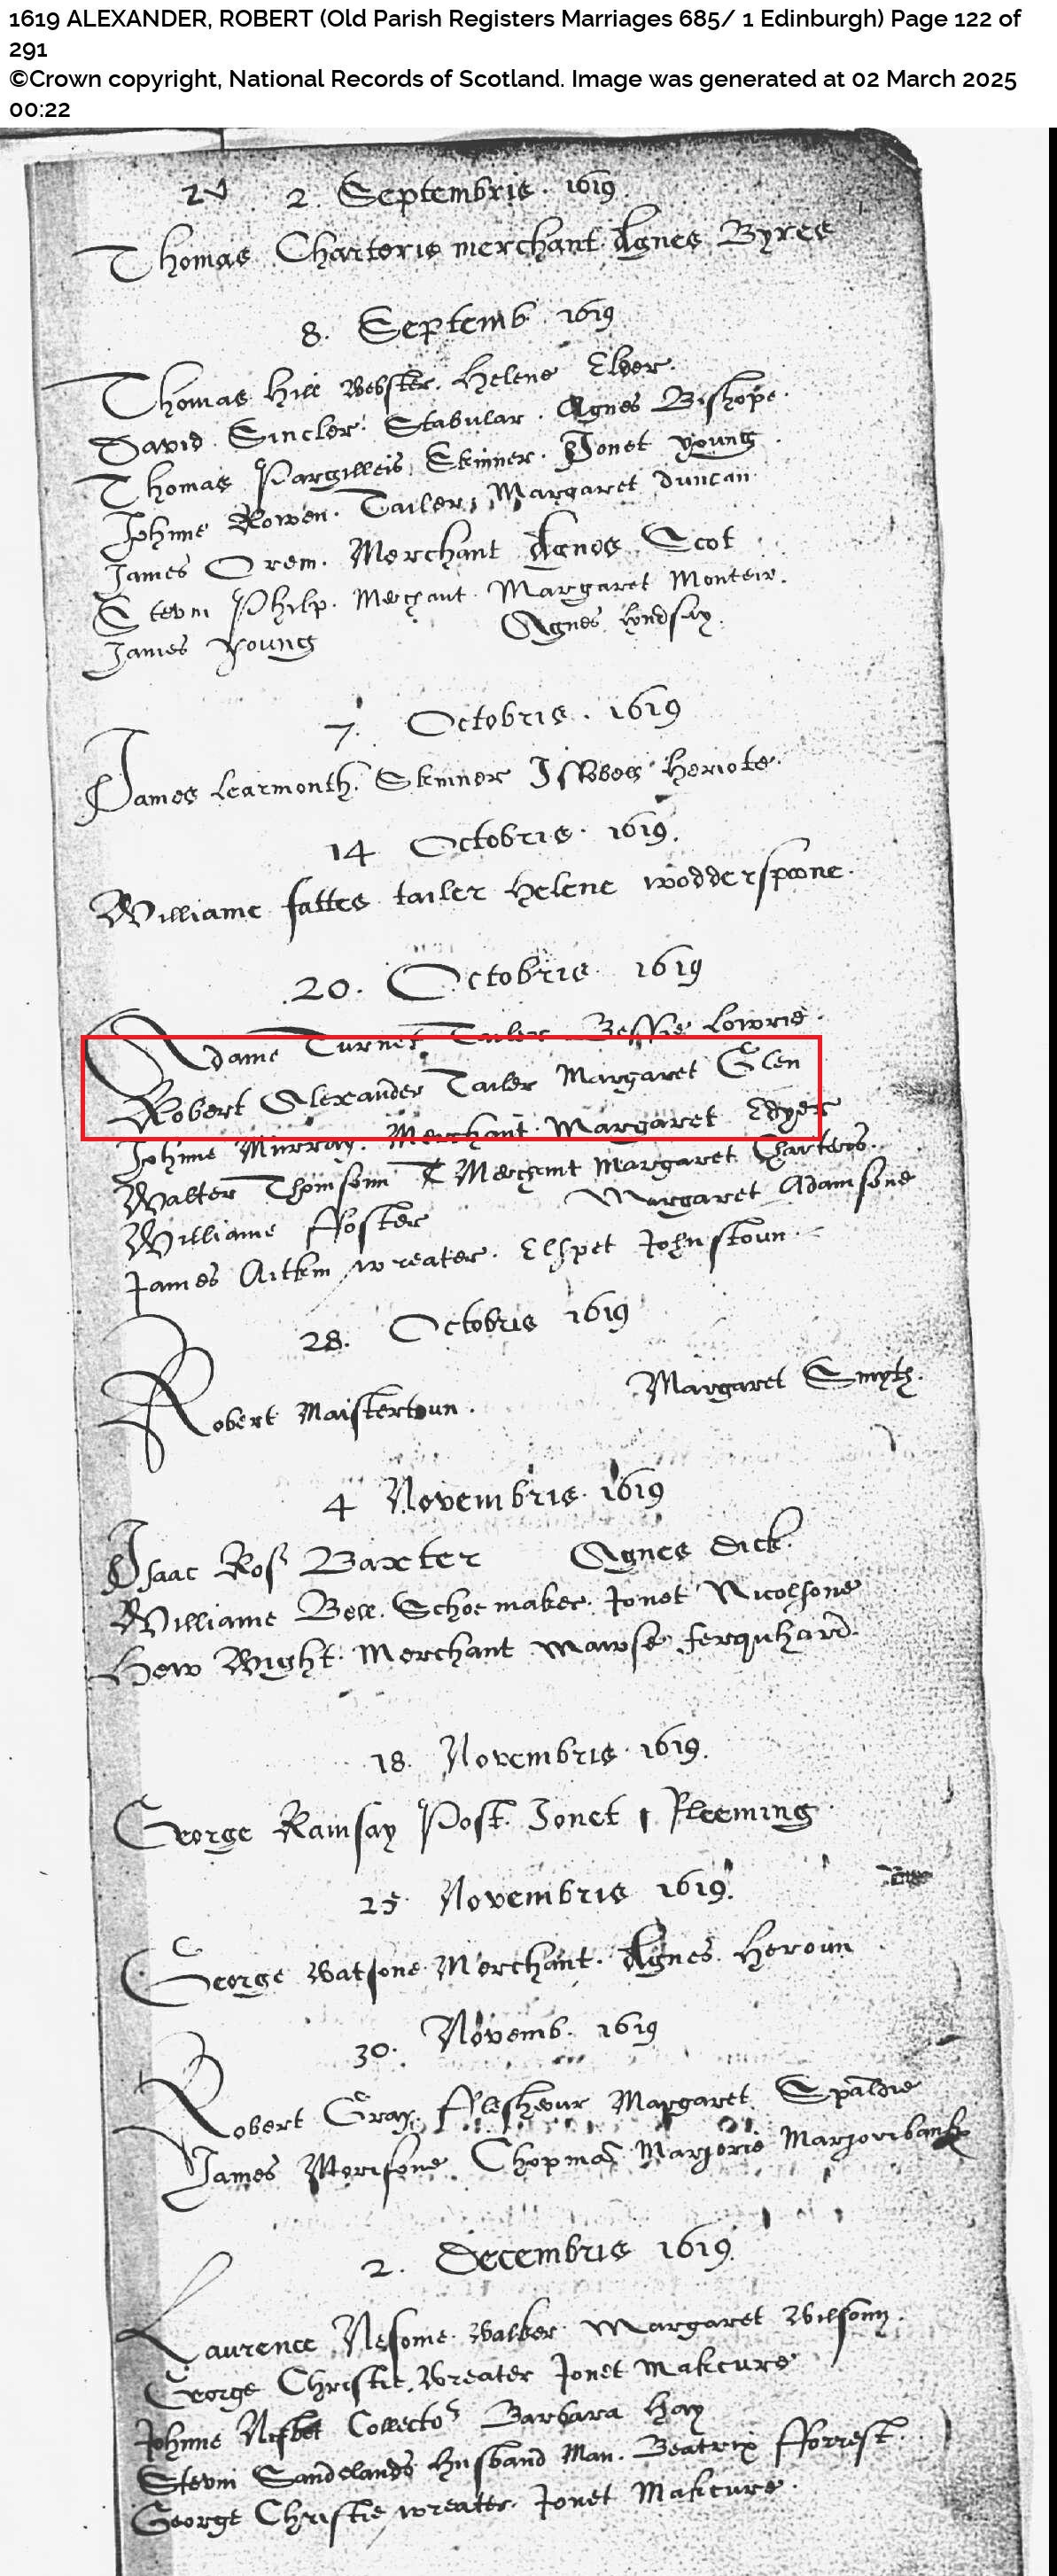 1619 ALEXANDER, ROBERT (Old Parish Registers Marriages 685/ 1 Edinburgh) Page 122 of
291
©Crown copyright, National Records of Scotland. Image was generated at 02 March 2025
00:22
2 Septembris 1619
Thomas Charteris merchant Agnes Byres
8. Septemb 1619
Thomas Hill Webster. Helene Elder.
David Sincler Stabular. Agnes Bishope.
Thomas Pargilleis Skinner. Jonet Young.
Johnne Rowen. Tailer, Margaret Duncan
James Orem. Merchant Agnes Scot
Stevin Philp. Merchant. Margaret Monteir.
James Young Agnes Lyndsay.
7. Octobris. 1619
James Learmonth. Skinner Issobes Heriote.
14 Octobris. 1619.
Williame fattes tailer Helene wodderspoone.
20. Octobris 1619
Adame Turnet Tailer Bessie Lowrie.
Robert Alexander Tailer Margaret Glen
Johnne Murray. Merchant. Margaret Edyer
Walter Thomsonn Merchant Margaret Charteris.
Williame ffoster Margaret Adamsone
James Aitkin wreater. Elspet Johnstoun.
28. Octobris 1619
Robert Maistertoun. Margaret Smyth.
4 Novembris 1619
Isaac Ross Baxter Agnes Dick.
Williame Bell. Schoemaker. Jonet Nicolsone
Hew Wight. Merchant Mawse Ferquhard.
18. Novembris 1619.
George Ramsay Post. Jonet Fleeming
25 Novembris 1619.
George Watsone Merchant. Agnes Heroun
30. Novemb. 1619
Robert Gray. Fleshour Margaret Spaldie
James Morisone. Chopman Marjorie Marjoribank
2. Decembris 1619.
Laurence Nesome Walker Margaret Wilsonn.
George Christie Wreater Jonet Makcure
Johnne Nisbet Collector Barbara Hay
Stevin Sandelands husband Man. Beatrix fforrest.
George Christie wreater Jonet Makcure.